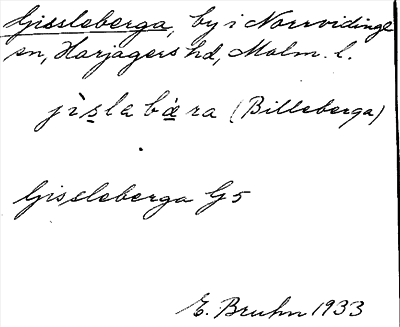 Gissleberga, by i Norrvidinge
sn, Harjagers hd, Malm. l.
jìslabæ̀ra (Billeberga)
Gissleberga G5
E. Bruhn 1933